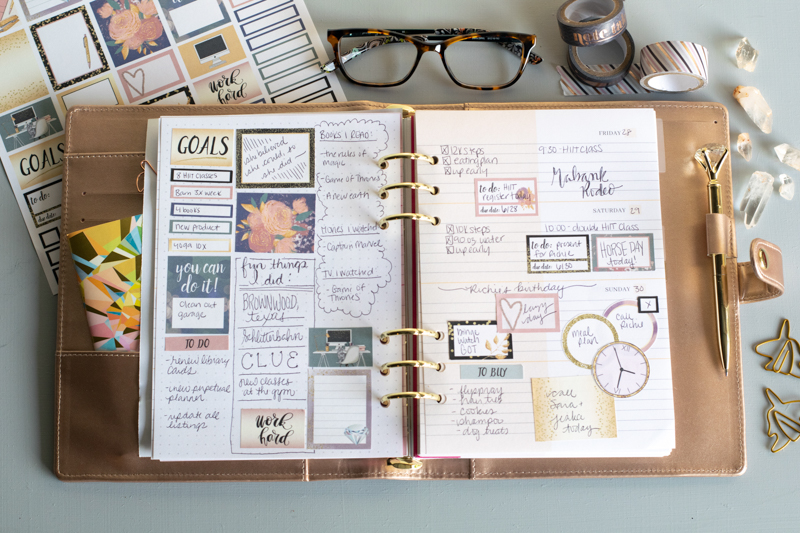 GOALS
work hard
GOALS
to do:
due date:
GOALS
8 HIIT CLASSES
Burn 5x week
4 books
new product
you can
do it!
Clean out
garage
TO DO
- renew library
cards
- new perpetual
planner
- update all
listings
she believed
she could so
she did
fun things
did:
BROWNWOOD,
texas
Schlitterbahn
CLUE
new classes
at the gym
work
hard
BOOKS I READ:
- the rules of
magic
- Game of Thrones
- A new earth
movies I watched
- Captain Marvel
TV I watched
- Game of
Thrones
FRIDAY 28
12K steps
eating plan
up early
9:30 HIIT CLASS
to do: HIIT
register today
due date: 6/28
Mabank
Rodeo
SATURDAY 29
10K steps
90 oz water
up early
10:00 - double HIIT Class
to do: present
for Archie
due date: 6/30
HORSE DAY
today!
SUNDAY 30
Richie's birthday
lazy
day
binge
watch
GOT
meal
plan
call
Richie
x
TO BUY
- flyspray
- hair ties
- cookies
- shampoo
- dog treats
today